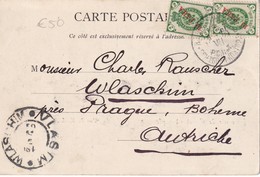 E50
CARTE POSTALE
Ce côté est exclusivement réservé à l'adresse.
Monsieur Charles Rauscher
Wlaschim
près Prague, Bohème
Autriche
WLASCHIM
VLAŠIM